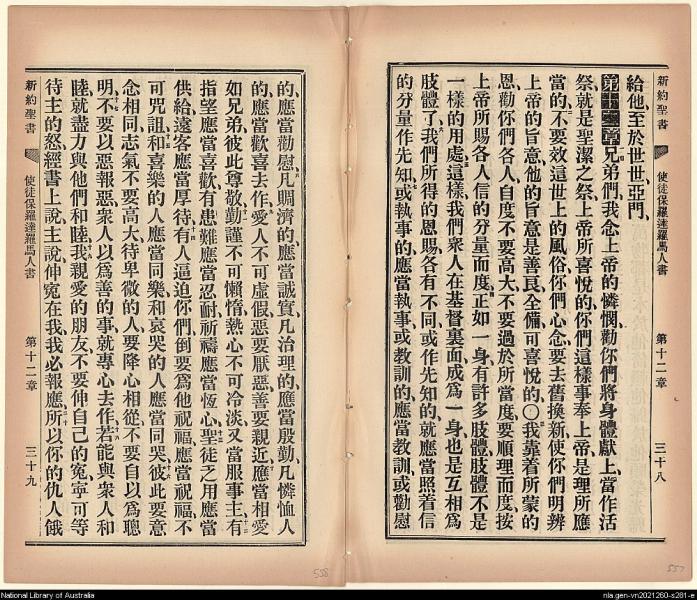 新約聖書
使徒保羅達羅馬人書
第十二章
三十八
給他、至於世世、亞門、
第十二章兄弟們、我念上帝的憐憫勸你們將身體獻上、當作活
祭、就是聖潔之祭、上帝所喜悅的、你們這樣事奉上帝是理所應
當的、不要效這世上的風俗、你們心念要去舊換新、使你們明辨
上帝的旨意、他的旨意是善良全備可喜悅的、〇我靠着所蒙的
恩、勸你們各人自度不要高大、不要過於所當度、要順理而度、按
上帝所賜各人信的分量而度、正如一身有許多肢體、肢體不是
一樣的用處、這樣、我們衆人在基督裏面成爲一身、也是互相爲
肢體了、我們所得的恩賜各有不同、或作先知的、就應當照着信
的分量作先知、或執事的、應當執事、或教訓的、應當教訓、或勸慰
的、應當勸慰、凡賙濟的、應當誠實、凡治理的、應當殷勤、凡憐恤人
的、應當歡喜去作、愛人不可虛假、惡要厭惡、善要親近、應當相愛
如兄弟、彼此尊敬、勤謹不可懶惰、熱心不可冷淡、又當服事主、有
指望應當喜歡、有患難應當忍耐、祈禱應當恆心、聖徒乏用應當
供給、遠客應當厚待、有人逼迫你們、倒要爲他祝福、應當祝福不
可咒詛、和喜樂的人應當同樂、和哀哭的人應當同哭、彼此要意
念相同、志氣不要高大、待卑微的人要降心相從、不要自以爲聰
明、不要以惡報惡、衆人以爲善的事、就專心去作、若能與衆人和
睦、就盡力與他們和睦、我親愛的朋友、不要伸自己的寃、寧可等
待主的怒、經書上說、主說、伸寃在我、我必報應、所以你的仇人餓
新約聖書
使徒保羅達羅馬人書
第十二章
三十九
558
557
National Library of Australia
nla.gen-vn2021260-s281-e